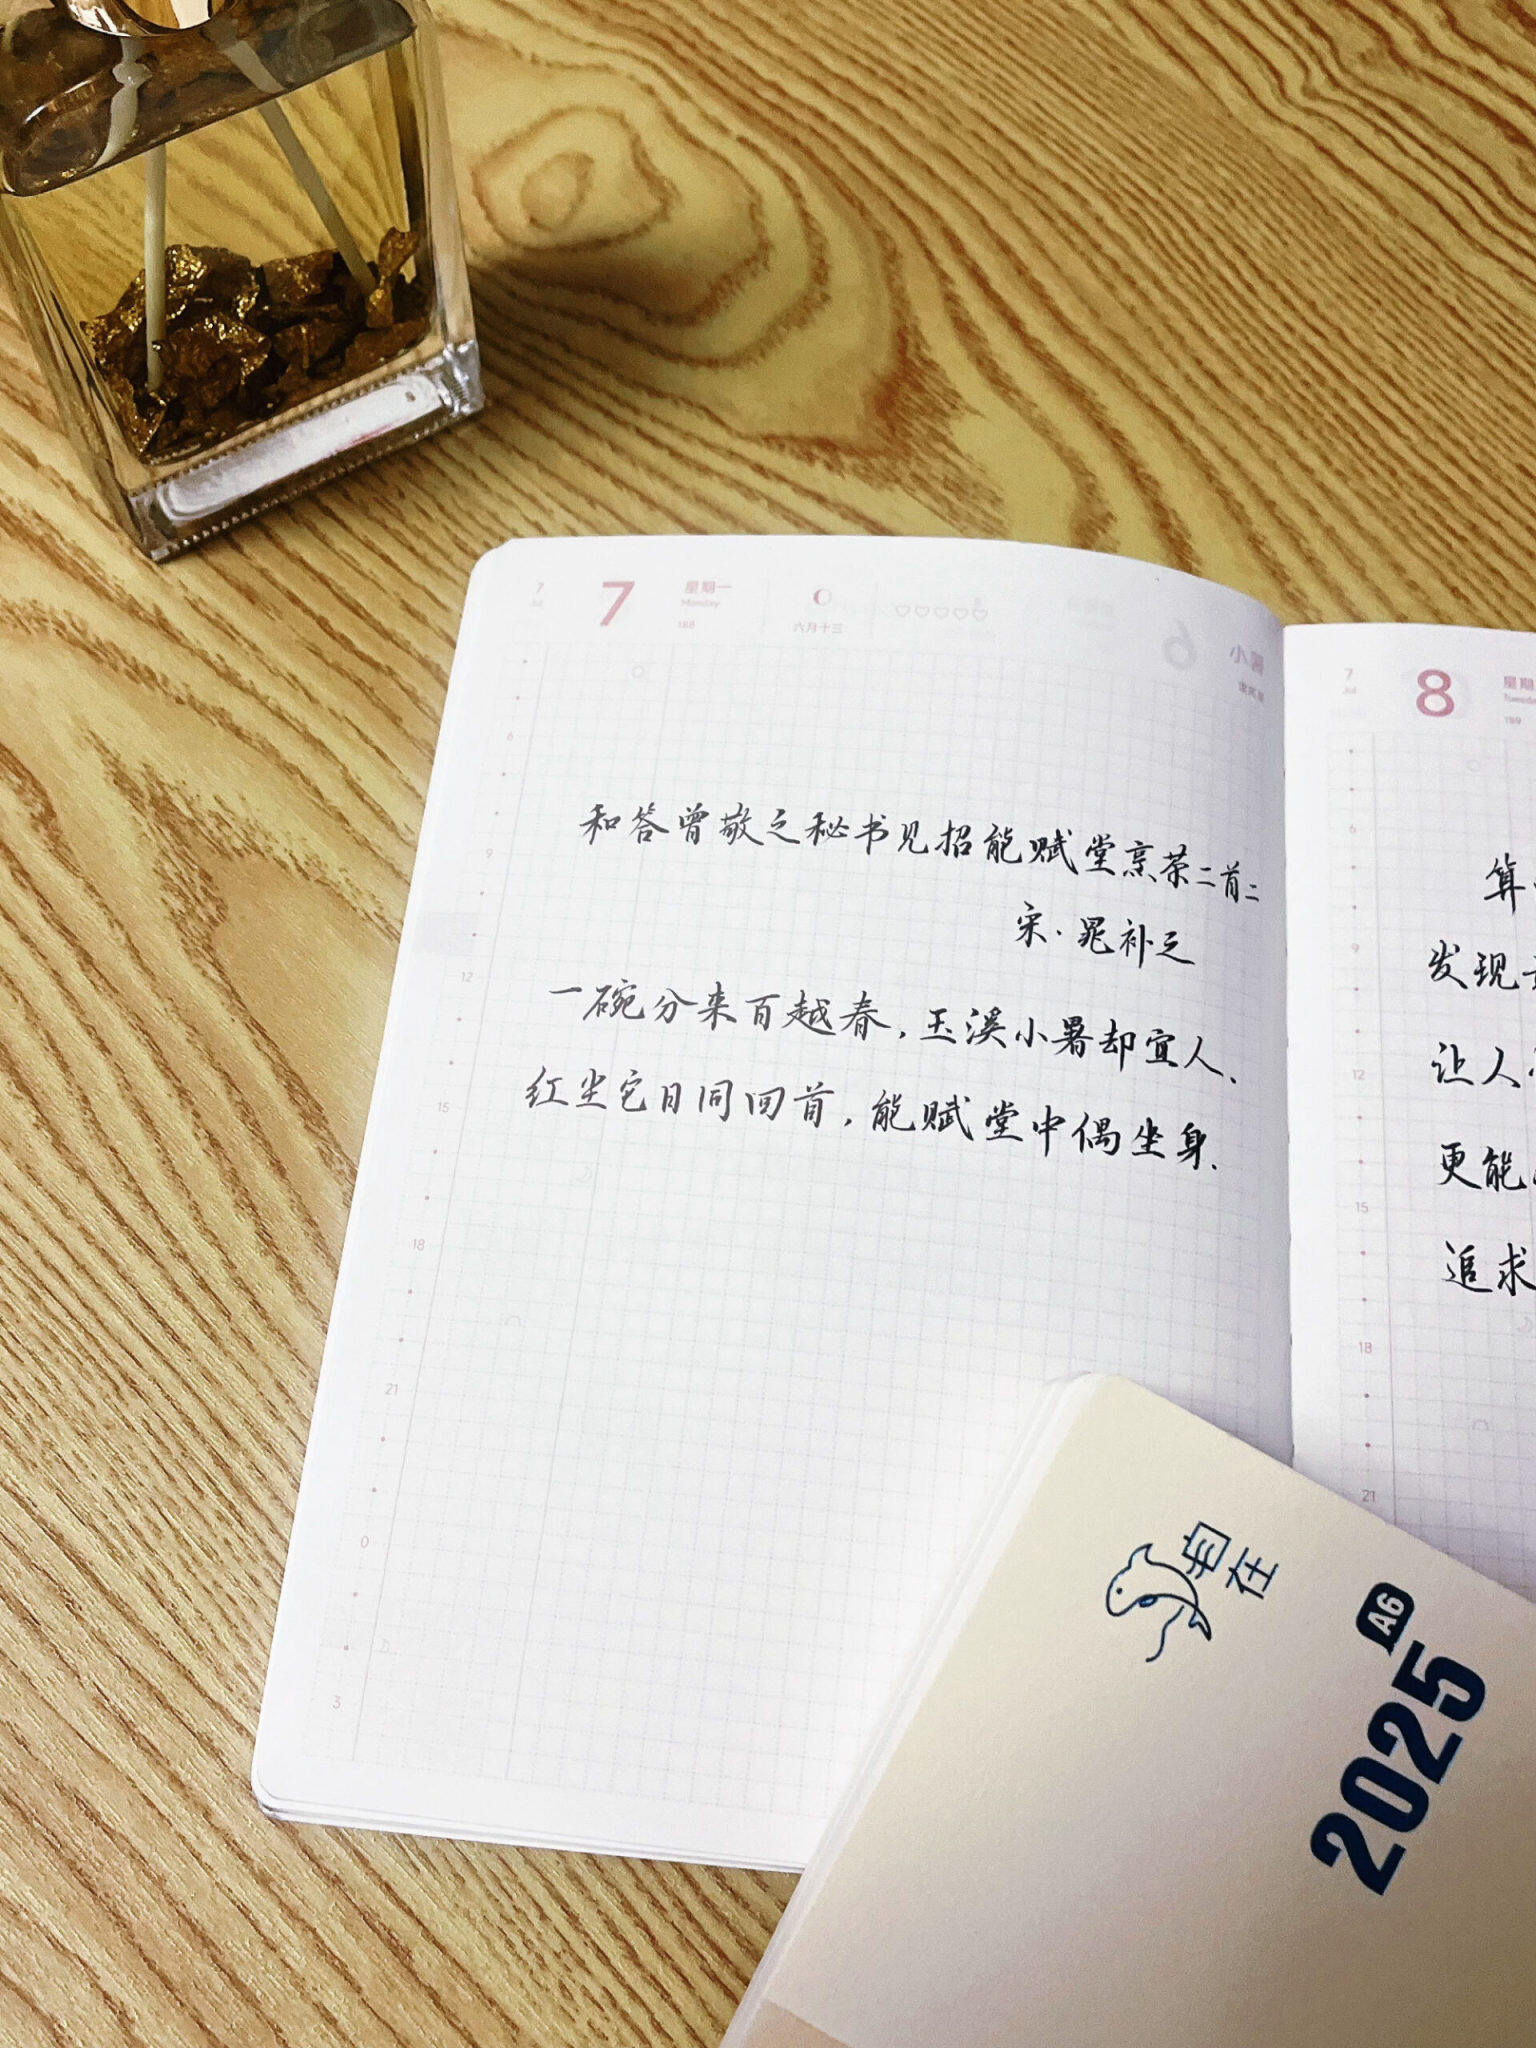 7
Jul
7
星期一
Monday
188
六月十三
小暑
和答曾敬之秘书见招能赋堂烹茶二首二
宋·晁补之
一碗分来百越春,玉溪小暑却宜人.
红尘它日同回首,能赋堂中偶坐身.
6
9
12
15
18
21
0
3
7
Jul
8
星期
189
算
发现
让人
更能
追求
6
9
12
15
18
21
自在
A6
2025